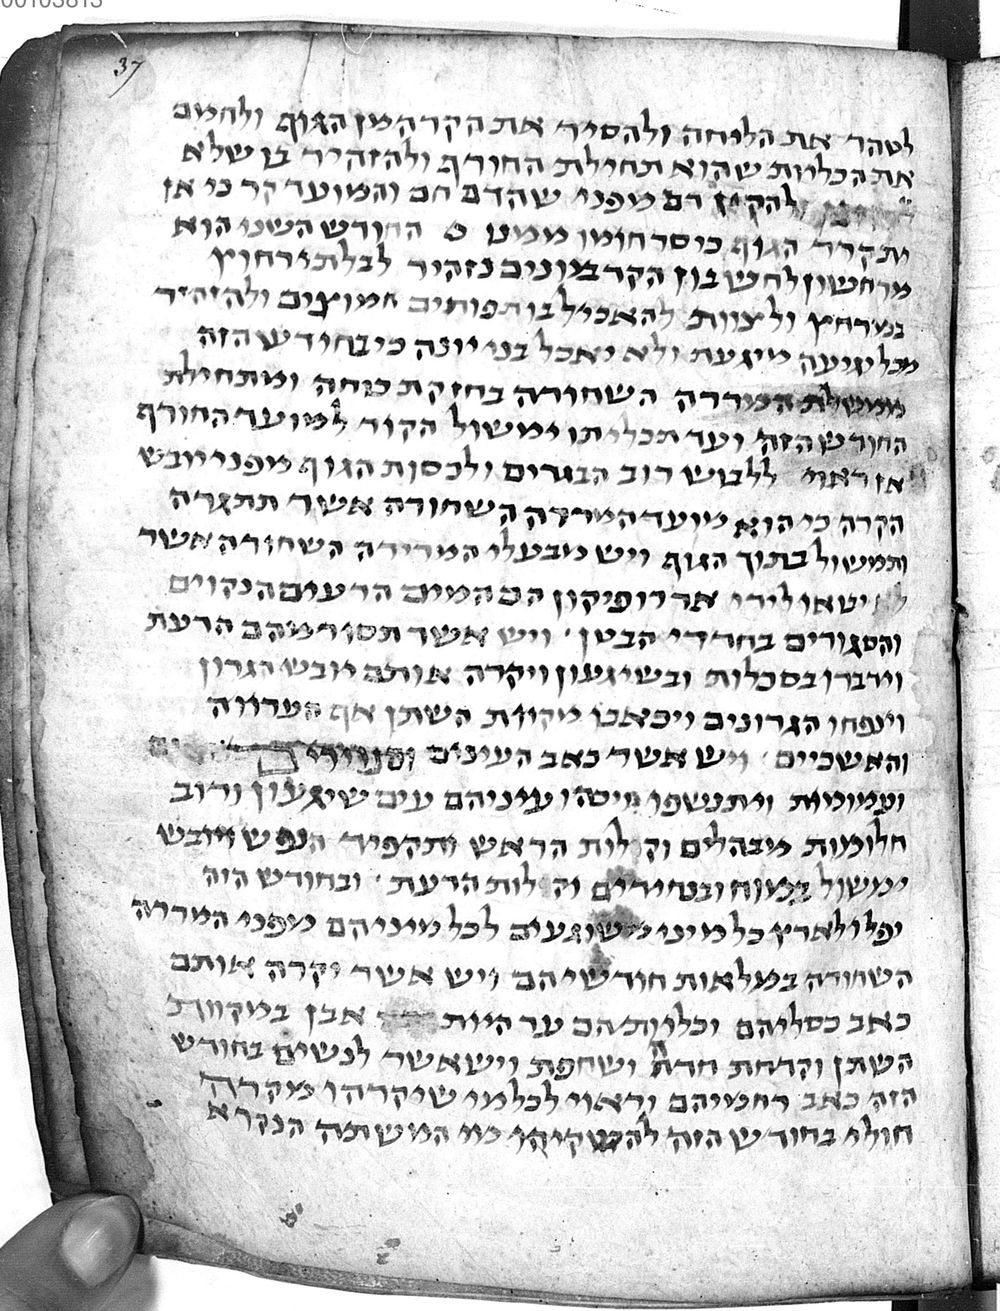 00103813
37
לטהר את הליחה ולהסיר את הקרה מן הגוף ולחמם
את הכליות שהוא תחילת החורף ולהזהיר בו שלא
להקיז דם מפני שהדם חם והמועד קר כי אז
יתקרר הגוף כיסר חומו ממנו ס החודש השני הוא
מרחשון לחשבון הקדמונים נזהיר לבלתי רחוץ
במרחץ ולצוות להאכיל בו תפוחים חמוצים ולהזהיר
מכל יגיעה מיגעת ולא יאכל בני יונה כי בחודש הזה
ממשלת המררה השחורה בחזקת כוחה ומתחילת
החודש הזה ועד תכליתו ימשול הקור למועד החורף
אז ראוי ללבוש רוב הבגדים ולכסות הגוף מפני יובש
הקרה כי הוא מועד המררה השחורה אשר תתגרה
ותמשול בתוך הגוף ויש מבעלי המרירה השחורה אשר
יטאו לידי אדרופיקון הם המים הרעים הנקוים
והסגורים בחדרי הבטן ויש אשר תסור מהם הדעת
וידברו בסכלות ובשיגעון ויקרה אותם יובש הגרון
וינפחו הגרונים ויכאבו מקוות השתן אף הערווה
והאשכיים ויש אשר כאב העינים וסנוירי
ועמומות ויתנשפו עיניהם עים שיגעון ורוב
חלומות מבהלים וק לות הראש ותקפיד הנפש ויובש
ימשול במוח ובנחירים וק לות הדעת ובחודש הזה
יפלו לארץ כל מיני משוגעים לכל מיניהם מפני המררה
השחורה במלאות חודשיהם ויש אשר יקרה אותם
כאב כסליהם וכליותיהם עד היות אבן במקוות
השתן וקדחת חדה ושחפת ויש אשר לנשים בחודש
הזה כאב רחמיהם וראוי לכל מי שיקרהו מקרה
חולי בחודש הזה להשקיהו מי המשתה הנקרא